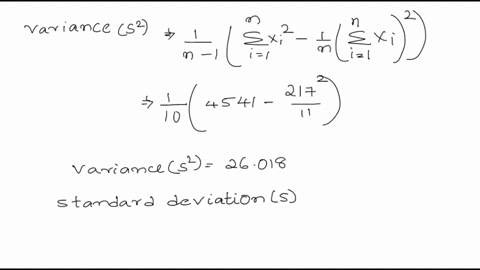 variance (s²) ⇒ 1/(n-1) (∑_{i=1}^{n} xi² - 1/n (∑_{i=1}^{n} xi)²)
⇒ 1/10 (4541 - 217²/11)
variance (s²) = 26.018
standard deviation (s)